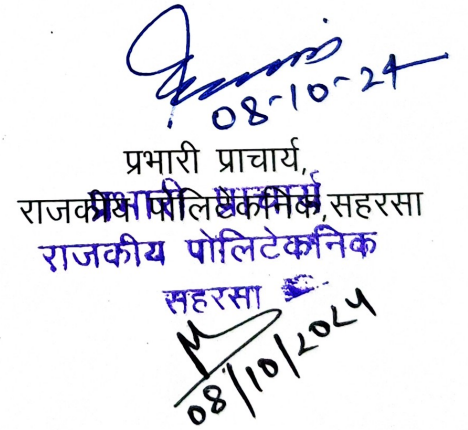 08-10-24
प्रभारी प्राचार्य,
राजकीय पोलिटेकनिक,सहरसा
प्रभारी प्राचार्य
राजकीय पोलिटेकनिक
सहरसा
08/10/2024